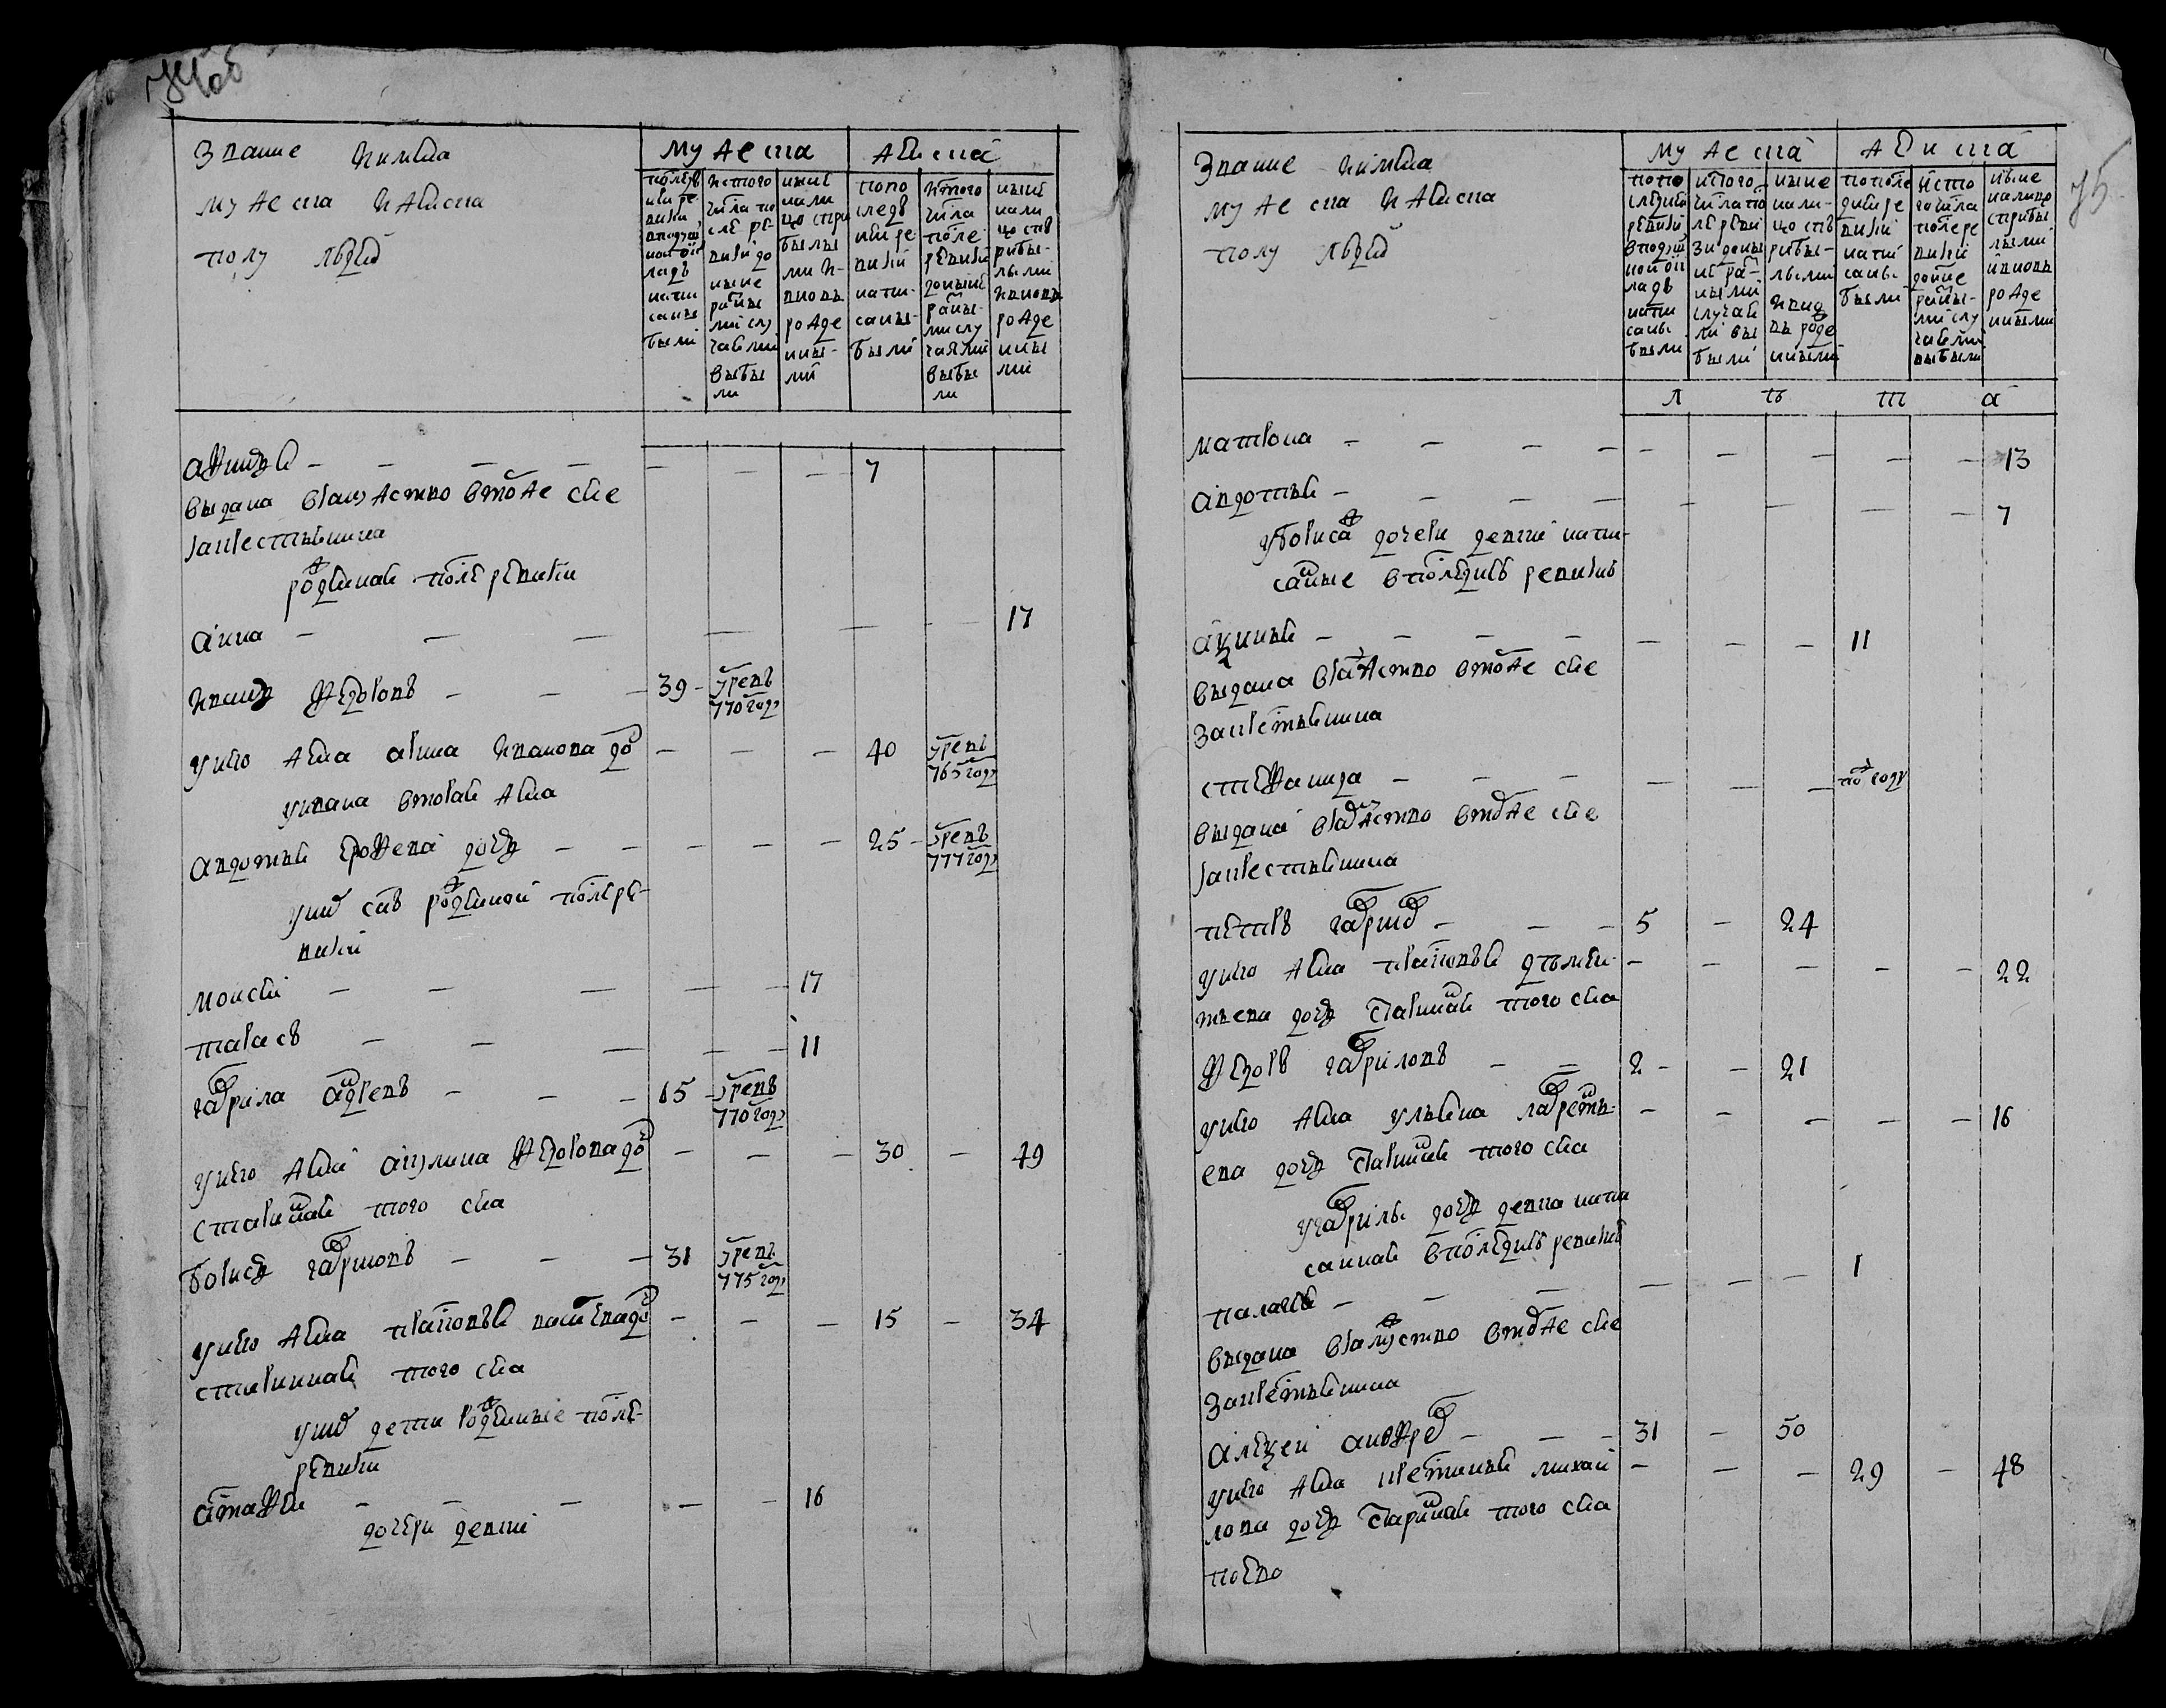 74об
Звание и имена
мужеска и женска
полу людей
мужеска женска
по последней ревизии в подушной оклад написаны были
из того числа после ревизии до ныне разными случаями выбыли
ныне налицо с прибылыми и вновь рожденными
по последней ревизии написаны были
из того числа после ревизии до ныне разными случаями выбыли
ныне налицо с прибылыми и вновь рожденными
афимья — — — — — — — 7
выдана в замужство в тоже село
за крестьянина
рожденная после ревизии
анна — — — — — — 17
иван федоров — — — 39 умре въ 770 году
у него жена арина иванова до — — — 40 умре въ 765 году
у ивана вторая жена
авдотья ерофеева дочь — — — — — 25 умре въ 777 году
у них сыны рожденной после ре-
визии
моисей — — — — — 17
тарасъ — — — — — 11
гаврила андреевъ — — — 15 умре въ 770 году
у него жена акулина федорова до — — — 30 — 49
старинная того села
борисъ гавриловъ — — — 31 умре въ 775 году
у него жена прасковья васильева до — — — 15 — 34
старинная того села
у них дети рожденные после
ревизии
астафей — — — — — 16
дочери девки
75
Звание и имена
мужеска и женска
полу людей
мужеска женска
по последней ревизии в подушной оклад написаны были
из того числа после ревизии до ныне разными случаями выбыли
ныне налицо с прибылыми и вновь рожденными
по последней ревизии написаны были
из того числа после ревизии до ныне разными случаями выбыли
ныне налицо с прибылыми и вновь рожденными
л ѣ т а
матрона — — — — — — — — — 13
авдотья — — — — — — — — 7
у бориса дочери девки напи-
санные в последней ревизии
аксинья — — — — — — — 11
выдана в замужство в тоже село
за крестьянина
стефанида — — — — — — по году
выдана в замужство в тоже село
за крестьянина
петръ гаврилов — — — 5 — 24
у него жена прасковья дъмен-
тьева дочь старинная того села — — — — — 22
федоръ гавриловъ — — 2 — — 21
у него жена ульяна лаврентъ-
ева дочь старинная того села — — — — — 16
у гаврилы дочь девка напи
санная в последней ревизии
палагея — — — — — — 1
выдана в замужство в тоже село
за крестьянина
алексей анофрев — — — 31 — 50
у него жена устинья михай
лова дочь старинная того села — — — 29 — 48